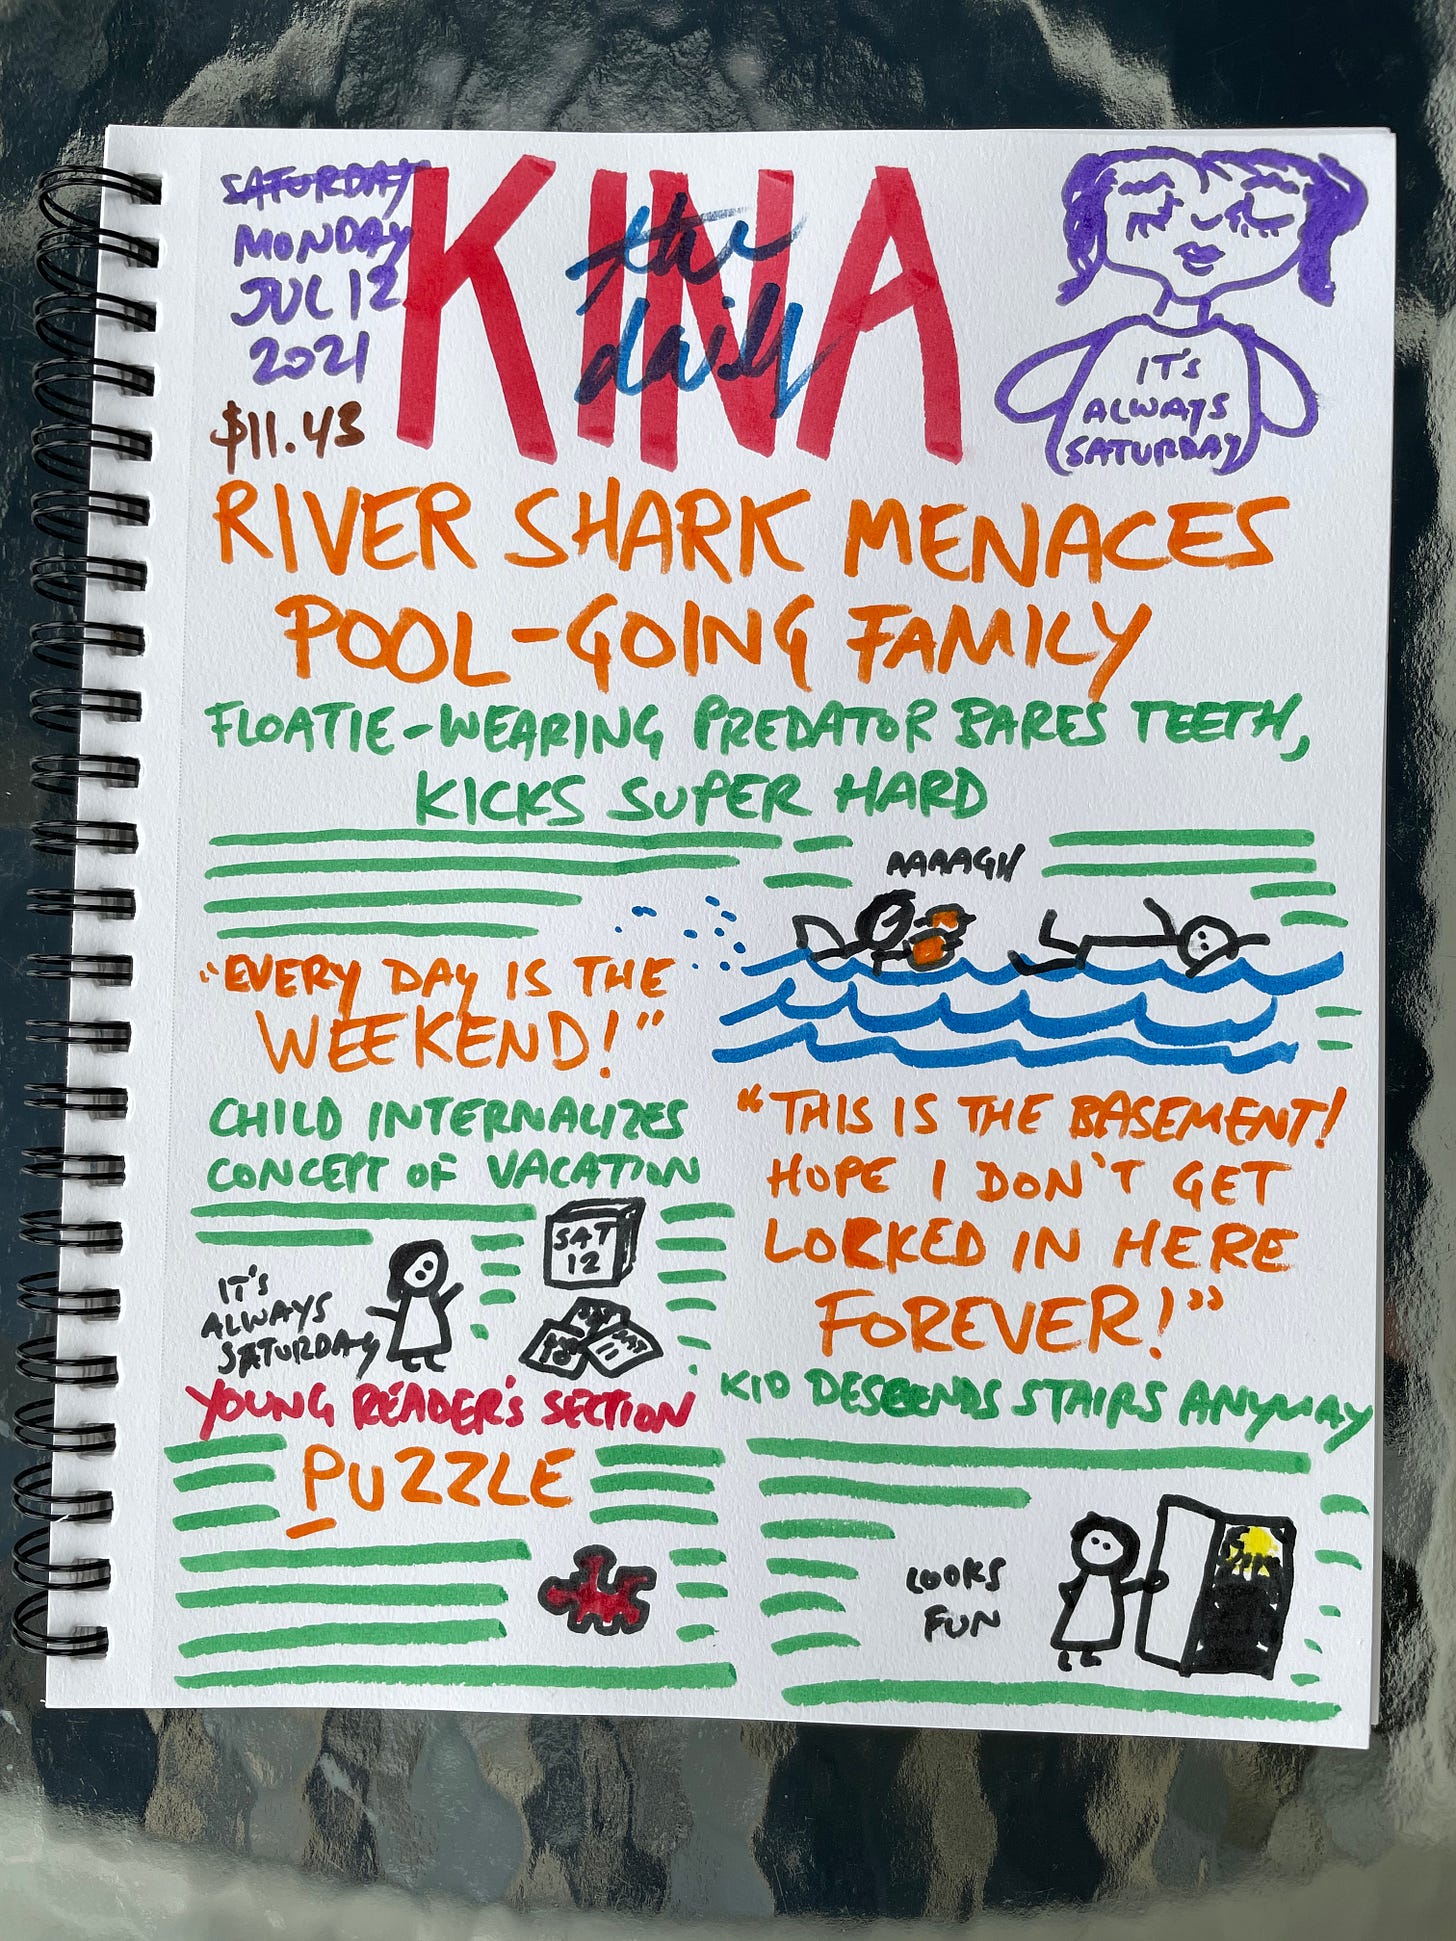 SATURDAY
MONDAY
JUL 12
2021
$11.43
KINA
the
daily
IT'S
ALWAYS
SATURDAY
RIVER SHARK MENACES
POOL-GOING FAMILY
FLOATIE-WEARING PREDATOR BARES TEETH,
KICKS SUPER HARD
AAAAGH
"EVERY DAY IS THE
WEEKEND!"
CHILD INTERNALIZES
CONCEPT OF VACATION
SAT
12
IT'S
ALWAYS
SATURDAY
"THIS IS THE BASEMENT!
HOPE I DON'T GET
LOCKED IN HERE
FOREVER!"
KID DESCENDS STAIRS ANYWAY
LOOKS
FUN
YOUNG READER'S SECTION
PUZZLE